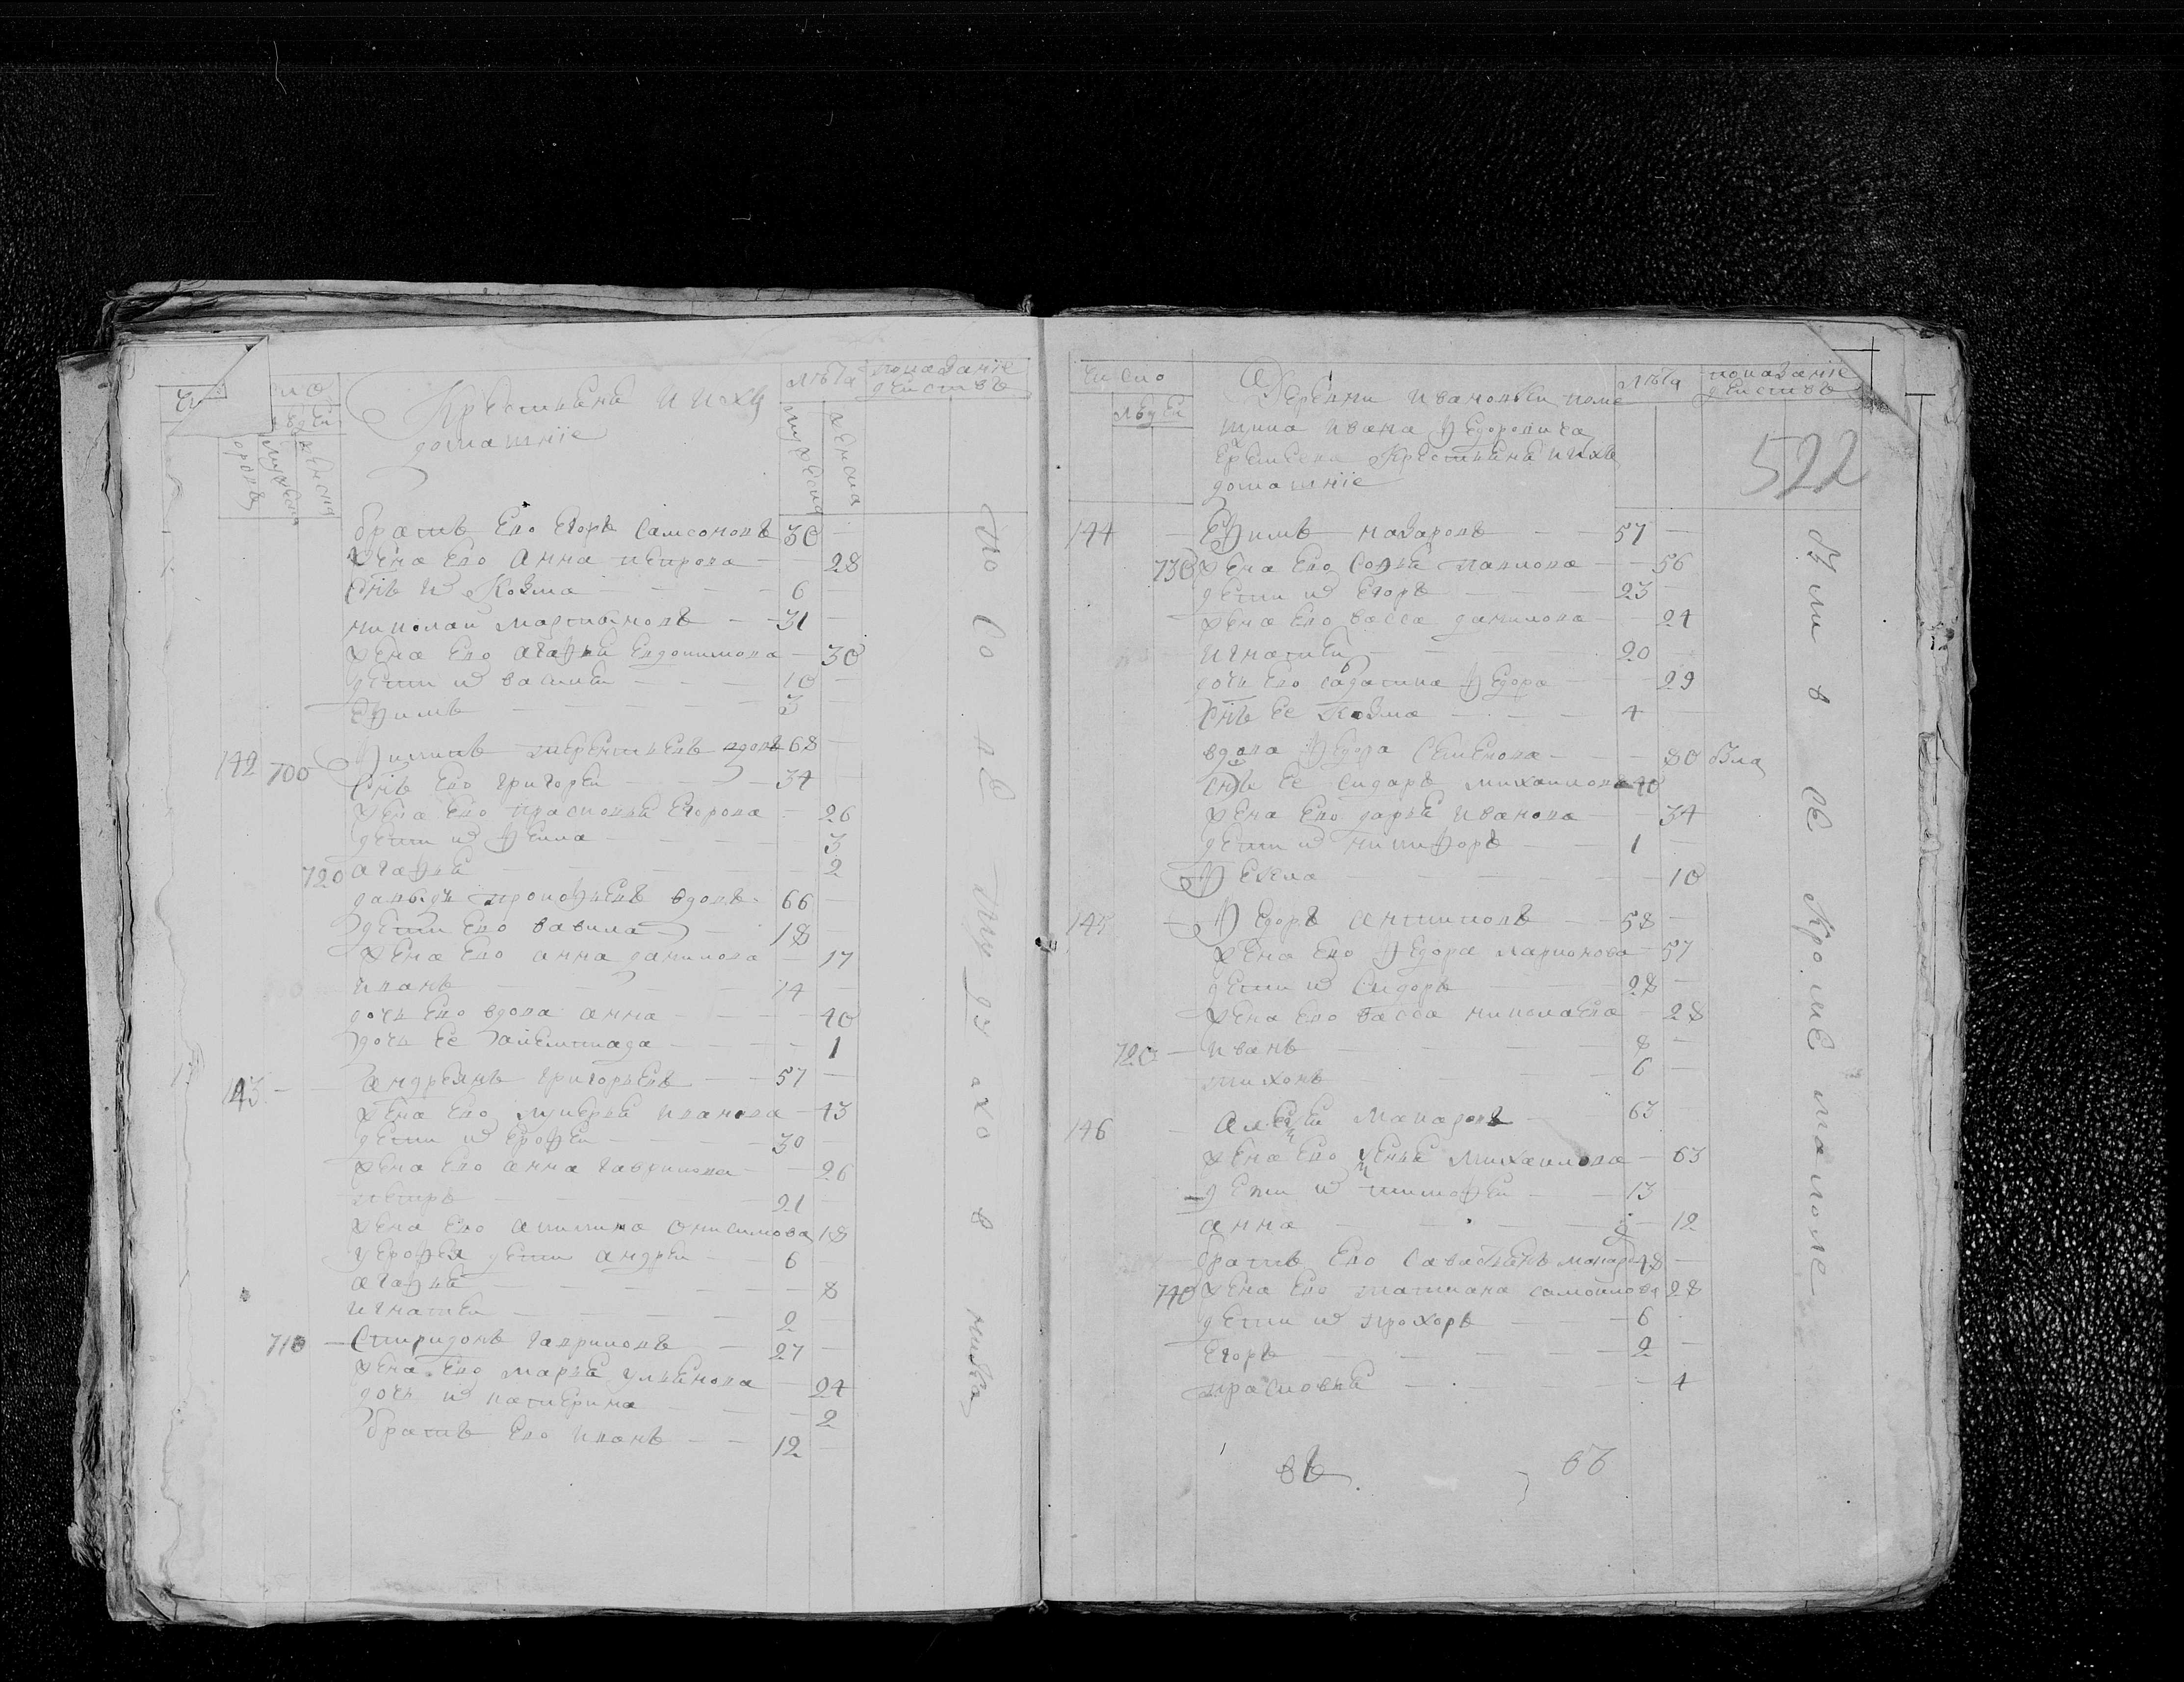 число
людей
дворовъ
мужеска
женска
Крестьяне и ихъ
домашніе
лѣта
мужеска
женска
показаніе
действъ
братъ ево Егоръ Самсоновъ 30
жена ево Анна Петрова 28
снъ их Козма 6
Николай Мартиановъ 31
жена ево Агафья Евдокимова 30
дети их Василей 10
Ефимъ 3
142 700 Филипъ Терентьевъ вдовъ 68
снъ ево Григорей 34
жена ево Прасковья Егорова 26
дети их Фекла 3
720 Агафья 2
Давыдъ Прокофьевъ вдовъ 66
дети ево Вавила 18
жена ево Анна Данилова 17
Иванъ 14
дочь ево вдова Анна 40
дочь ее 1
143 Андреянъ Григорьевъ 57
жена ево Лукерья Иванова 43
дети их Ерофей 30
жена ево Анна Гаврилова 26
Петръ 21
жена ево Акилина Онисимова 18
у Ерофея дети Андрей 6
Агафья 8
Игнатей 2
710 Спиридонъ Гавриловъ 27
жена ево Марья Ульянова 24
дочь их Катерина 2
братъ ево Иванъ 12
по
со
число
людей
Деревни Ивановки поме
щика Ивана Федоровича
Еремеева Крестьяне и ихъ
домашніе
лѣта
показаніе
действъ
522
144 Ефимъ Назаровъ 57
730 жена ево Софья Павлова 56
дети их Егоръ 23
жена ево Васса Данилова 24
Игнатей 20
дочь ево Федора 29
снъ ее Козма 4
вдова Федора Семенова 80
снъ ее Сидаръ Михаиловъ 40
жена ево Дарья Иванова 34
дети их Никифоръ 1
Фекла 10
145 Федоръ Антиповъ 58
жена ево Федора Ларионова 57
дети их Сидоръ 28
жена ево Васса Николаева 28
720 Иванъ 8
Тихонъ 6
146 Алексей Макаровъ 63
жена ево Ксенья Михаилова 63
дети их Тимофей 13
Анна 12
братъ ево Савастьянъ Макаро 48
740 жена ево Татиана Самоилова 28
дети их Прохоръ 6
Егоръ 2
Прасковья 4
въ
66
кроме